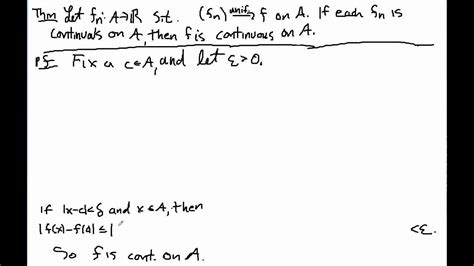 Thm Let fn: A→ℝ s.t. (fn) unif→ f on A. If each fn is
continuous on A, then f is continuous on A.
pf: Fix a c∈A, and let ε>0.
If |x-c|<δ and x∈A, then
|f(x)-f(c)| ≤ | <ε.
So f is cont. on A.